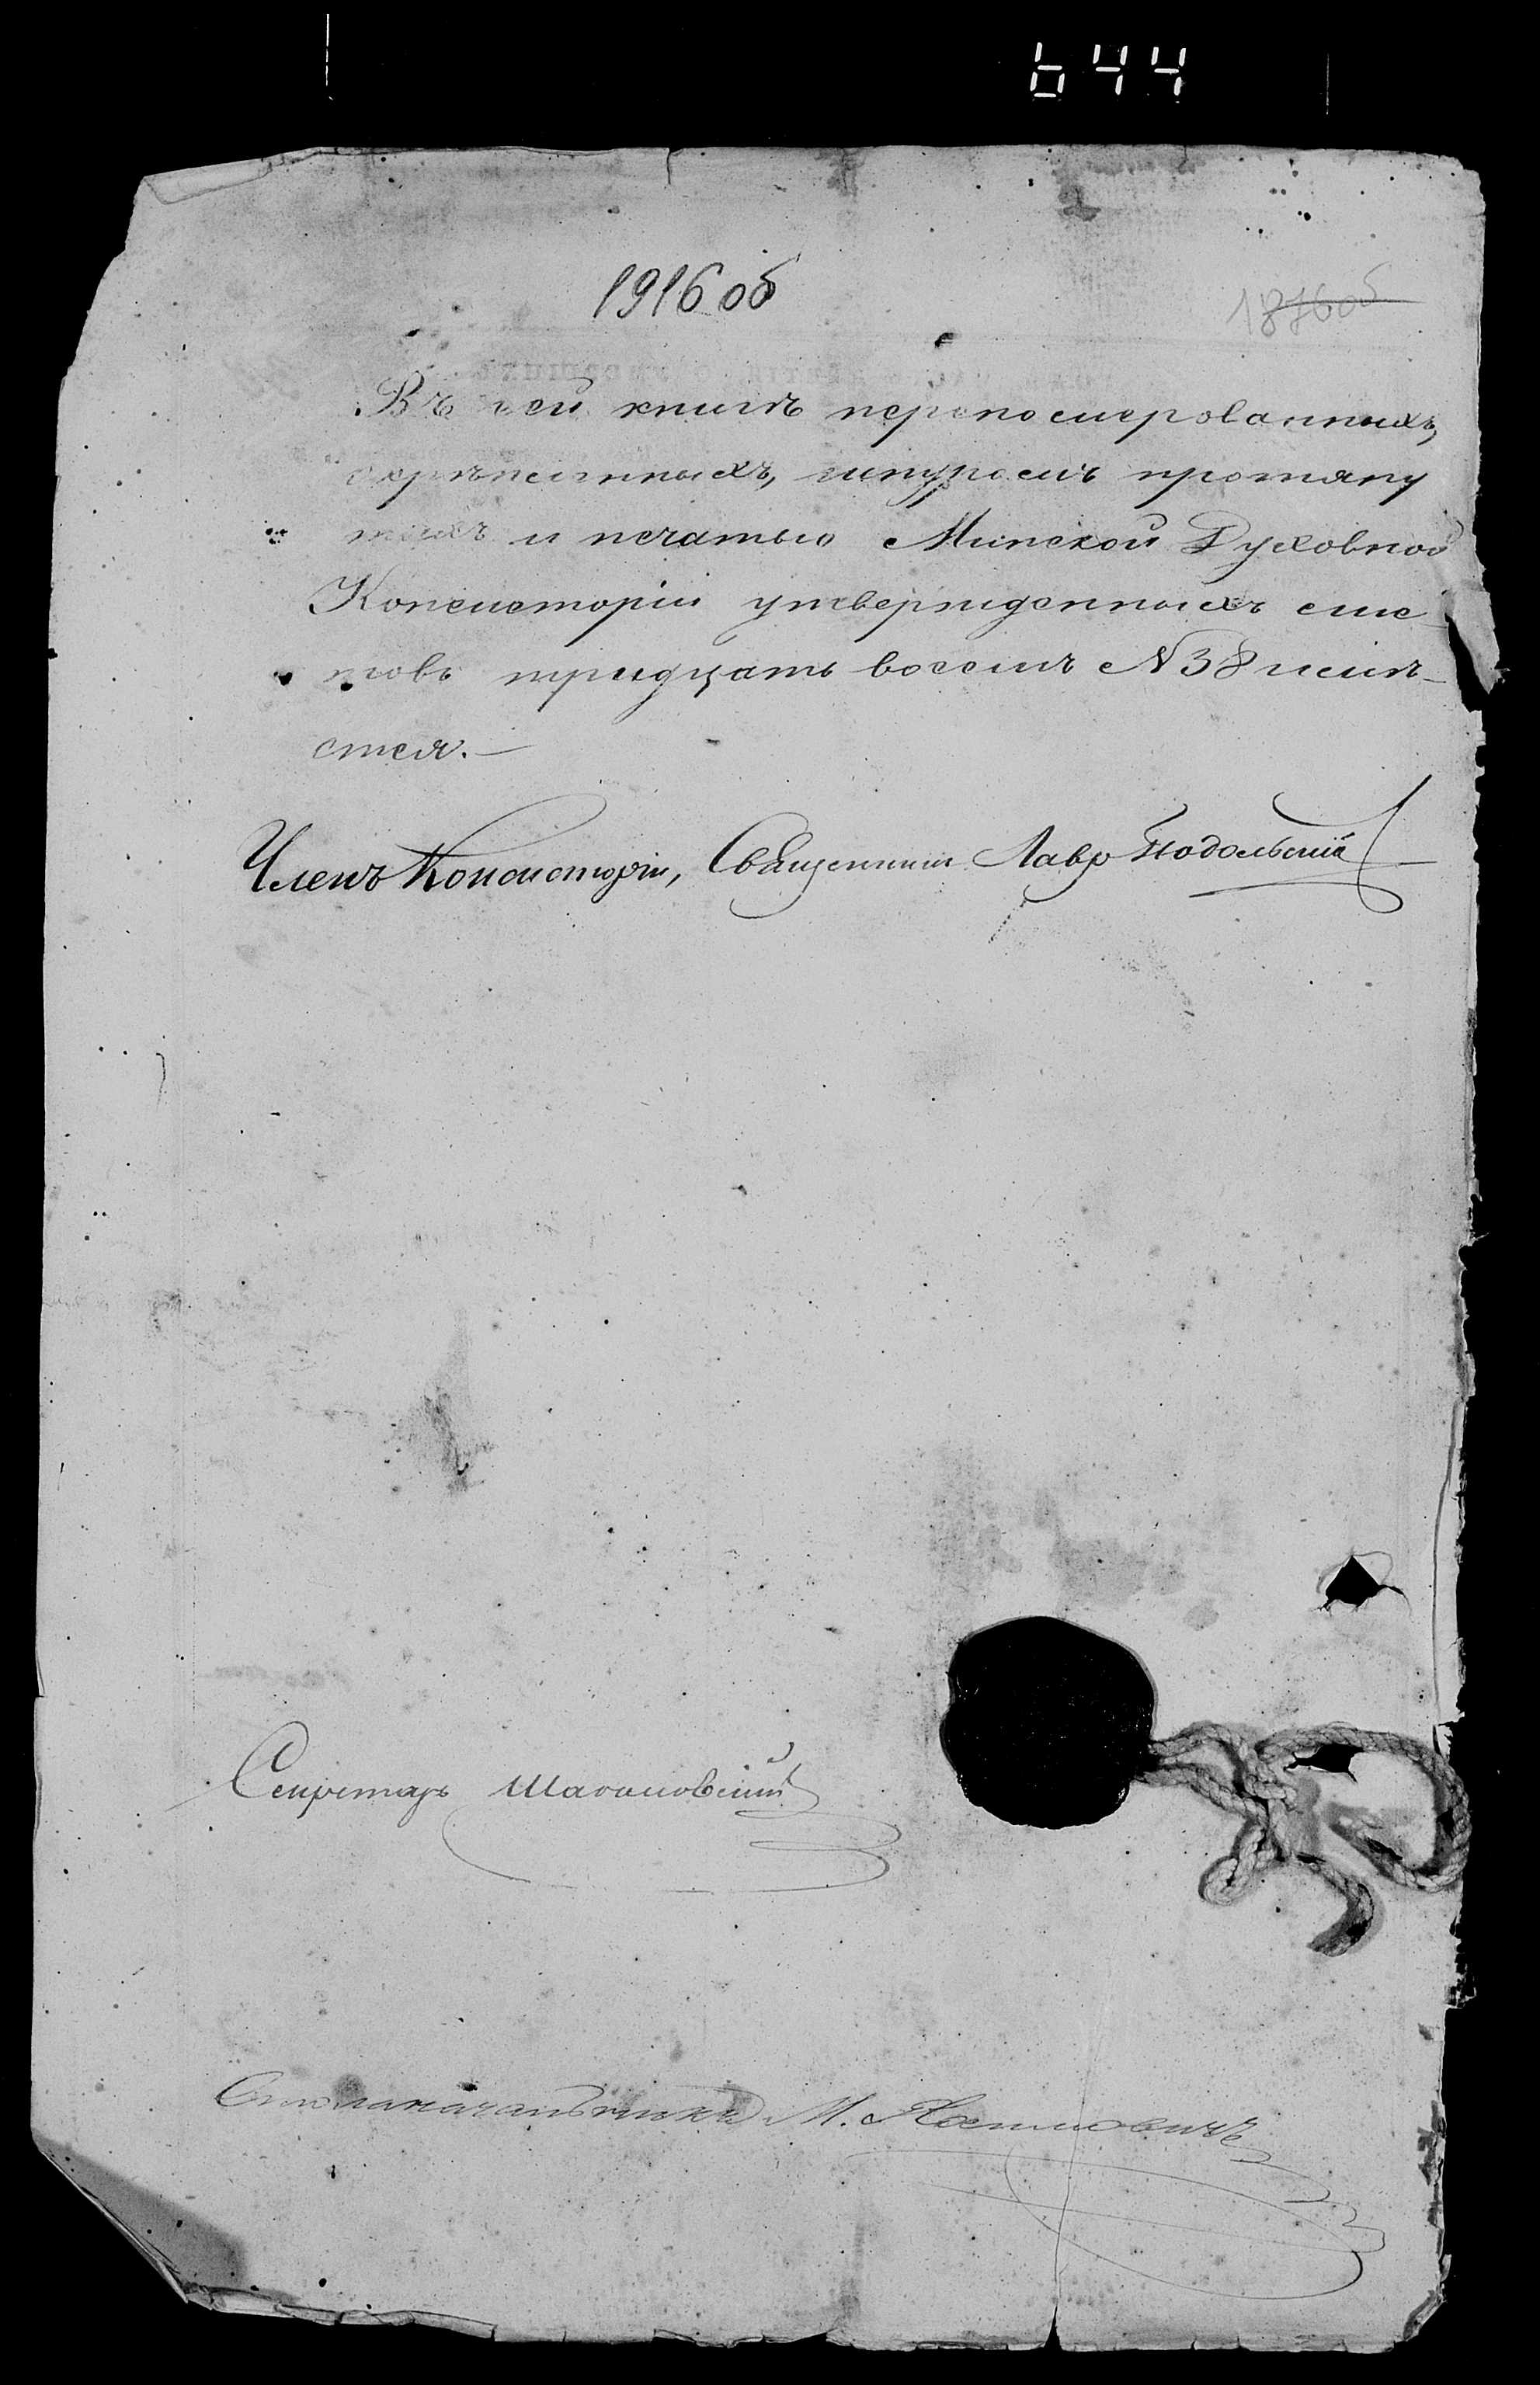 644
1916 об
1876 об
Въ сей книгѣ перепомерованныхъ,
скрѣпленныхъ, шнуромъ протяну
тыхъ и печатью Минской Духовной
Консисторіи утвержденныхъ лис
товъ тридцать восемь N 38 имѣ-
ется.
Членъ Консисторіи, Священникъ Лавръ Подольскій
Секретарь
Столоначальникъ М.